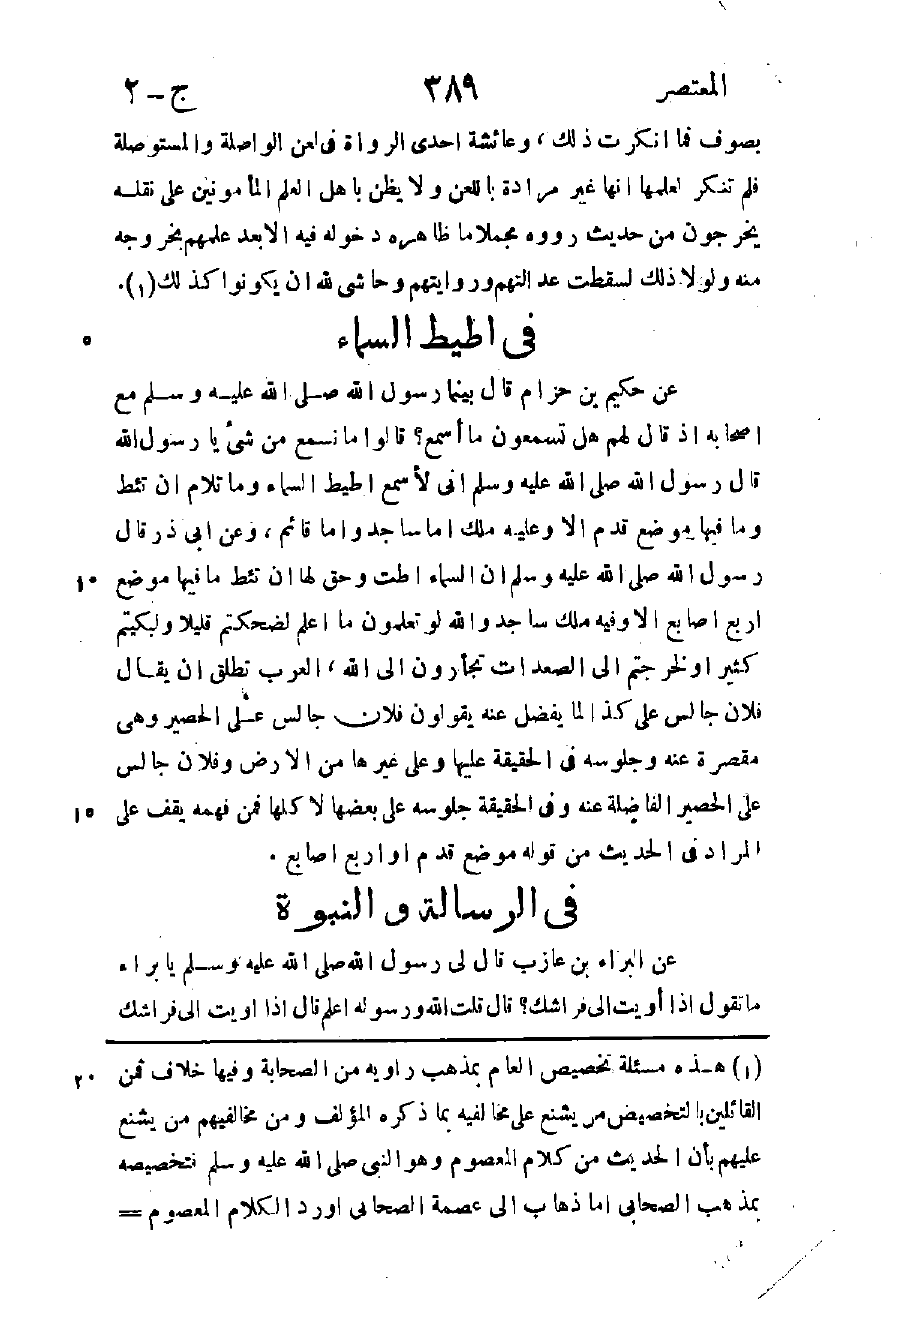 المعتصر ٣٨٩ ج-٢
بصوف فما انكرت ذلك، وعائشة احدى الرواة فى لعن الواصلة والمستوصلة
فلم تنكر لعلمها انها غير مرادة باللعن ولا يظن باهل العلم المأمونين على نقله
يخرجون من حديث رووه مجملا ما ظاهره دخوله فيه الا بعد علمهم بخروجه
منه ولولا ذلك لسقطت عدالتهم وروايتهم وحاشى لله ان يكونوا كذلك(١).
فى اطيط السماء
٥
عن حكيم بن حزام قال بينما رسول الله صلى الله عليه وسلم مع
اصحابه اذ قال لهم هل تسمعون ما أسمع؟ قالوا ما نسمع من شئ يا رسول الله
قال رسول الله صلى الله عليه وسلم انى لأسمع اطيط السماء وما تلام ان تئط
وما فيها موضع قدم الا وعليه ملك اما ساجد واما قائم، وعن ابى ذر قال
رسول الله صلى الله عليه وسلم ان السماء اطت وحق لها ان تئط ما فيها موضع ١٠
اربع اصابع الا وفيه ملك ساجد والله لو تعلمون ما اعلم لضحكتم قليلا ولبكيتم
كثيرا ولخرجتم الى الصعدات تجأرون الى الله، العرب تطلق ان يقال
فلان جالس على كذا لما يفضل عنه يقولون فلان جالس على الحصير وهى
مقصرة عنه وجلوسه فى الحقيقة عليها وعلى غيرها من الارض وفلان جالس
على الحصير الفاضلة عنه وفى الحقيقة جلوسه على بعضها لا كلها فمن فهمه يقف على ١٥
المراد فى الحديث من قوله موضع قدم او اربع اصابع .
فى الرسالة و النبوة
عن البراء بن عازب قال لى رسول الله صلى الله عليه وسلم يا براء
ما تقول اذا أويت الى فراشك؟ قال قلت الله ورسوله اعلم قال اذا اويت الى فراشك
(١) هذه مسئلة تخصيص العام بمذهب راويه من الصحابة وفيها خلاف فمن ٢٠
القائلين بالتخصيص من يشنع على مخالفيه بما ذكره المؤلف ومن مخالفيهم من يشنع
عليهم بأن الحديث من كلام المعصوم وهو النبى صلى الله عليه وسلم فتخصيصه
بمذهب الصحابى اما ذهاب الى عصمة الصحابى اورد الكلام المعصوم =